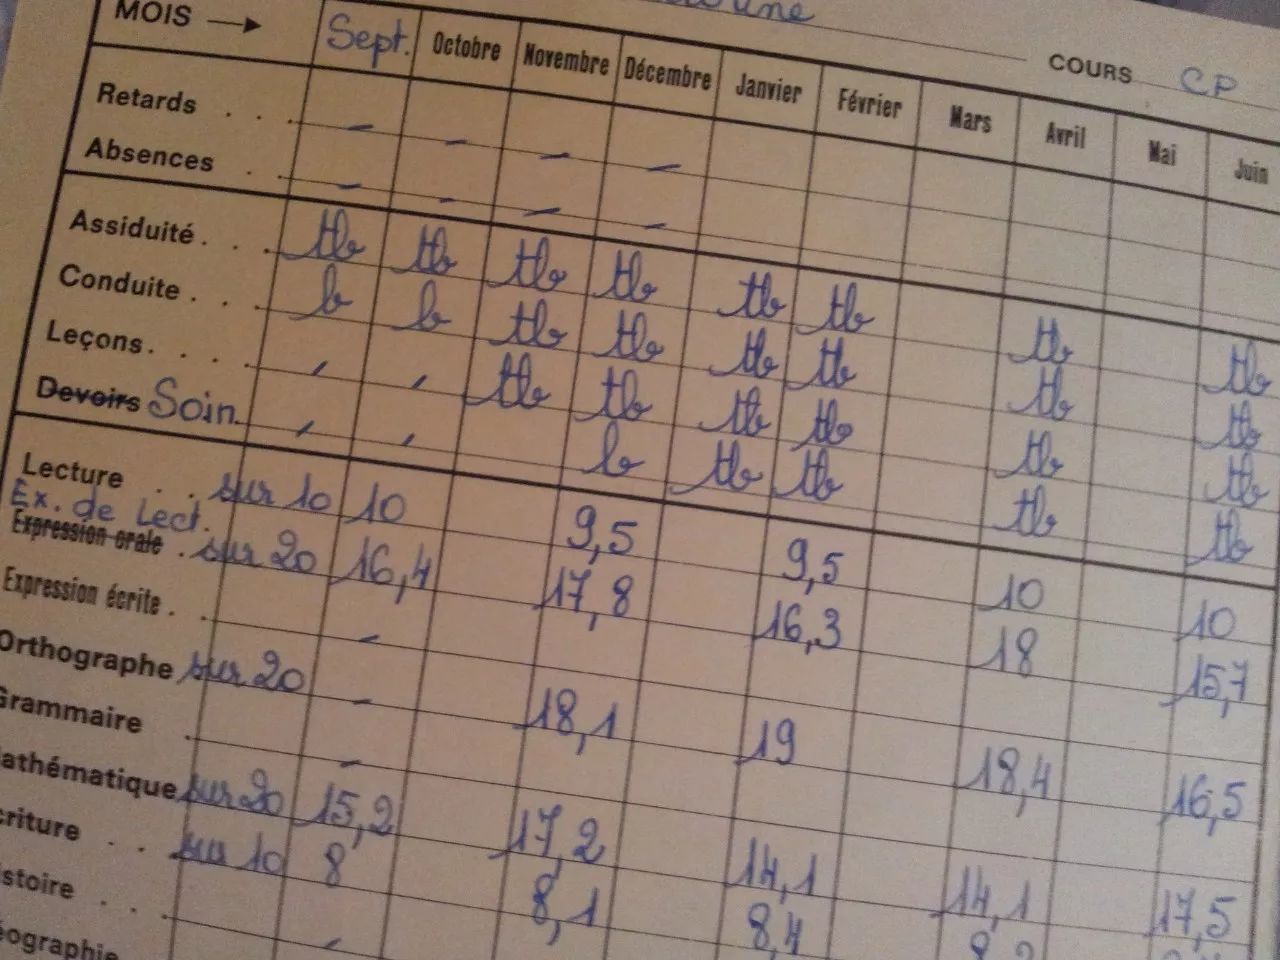 MOIS → Sept. Octobre Novembre Décembre Janvier Février Mars Avril Mai Juin
COURS CP
Retards . . . - - - -
Absences . . - - - -
Assiduité . . . tb tb tb tb tb tb tb tb
Conduite . . . b b tb tb tb tb tb tb
Leçons . . . . , , tb tb tb tb tb tb
Devoirs Soin. , , b tb tb tb tb
Lecture . . sur 10 10 9,5 9,5 10 10
Ex. de Lect.
Expression orale . sur 20 16,4 17,8 16,3 18 15,7
Expression écrite . . -
Orthographe sur 20 - 18,1 19 18,4 16,5
Grammaire . -
athématique sur 20 15,2 17,2 14,1 14,1 17,5
criture . . sur 10 8 8,1 8,4
stoire . . . -
éographie